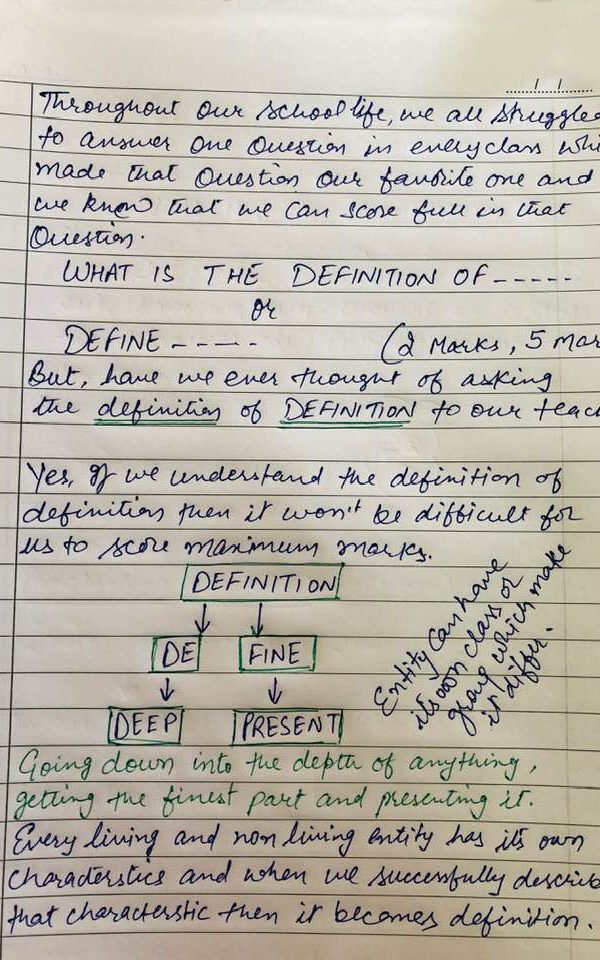 Throughout our school life, we all struggle
to answer one Question in every class whi
made that Question our favorite one and
we know that we can score full in that
Question.
WHAT IS THE DEFINITION OF -----
or
DEFINE ----- (2 Marks, 5 Mar
But, have we ever thought of asking
the definition of DEFINITION to our teac
Yes, If we understand the definition of
definition then it won't be difficult for
us to score maximum marks.
DEFINITION
DE FINE
DEEP PRESENT
Entity Can have
its own class or
which make
it differ.
Going down into the depth of anything,
getting the finest part and presenting it.
Every living and non living entity has its own
charaderstics and when we successfully describ
that characterstic then it becomes definition.